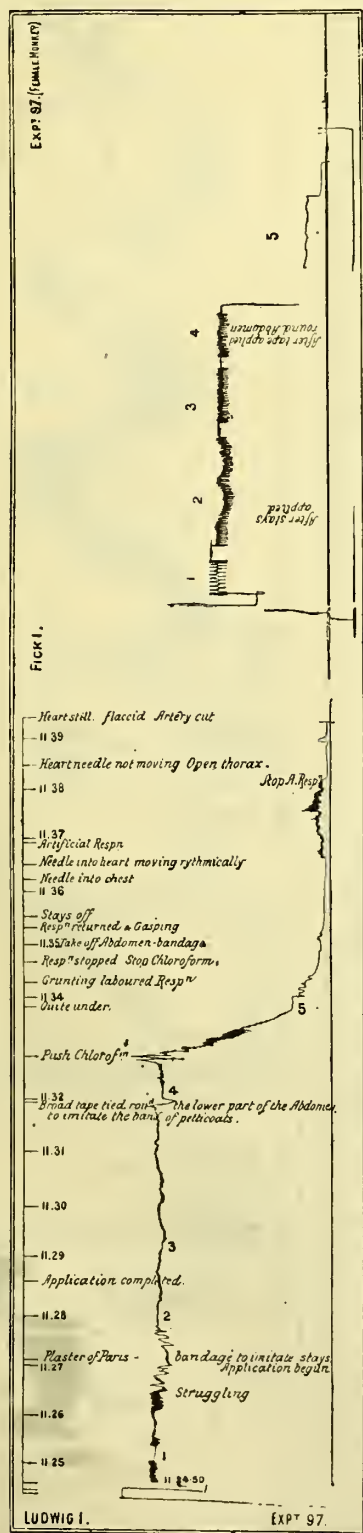 EXPT 97. (FEMALE MONKEY)
FICK I.
1
2
3
4
5
After stays
applied
After tape applied
round Abdomen
Heart still. flaccid Artery cut
11 39
Heart needle not moving Open thorax.
11 38
Stop A. Respn
11.37
Artificial Respn
Needle into heart moving rythmically
Needle into chest
11 36
Stays off
Respn returned & Gasping
11.35 Take off Abdomen-bandage
Respn stopped Stop Chloroform.
Grunting laboured Respn
11 34
Quite under.
5
Push Chlorofm
4
11.32
Broad tape tied round the lower part of the Abdomen,
to imitate the band of petticoats.
11.31
11.30
3
11.29
Application completed.
11.28
2
Plaster of Paris - bandage to imitate stays
Application begun
11.27
Struggling
11.26
1
11.25
11 24·50
LUDWIG I.
EXPT 97.